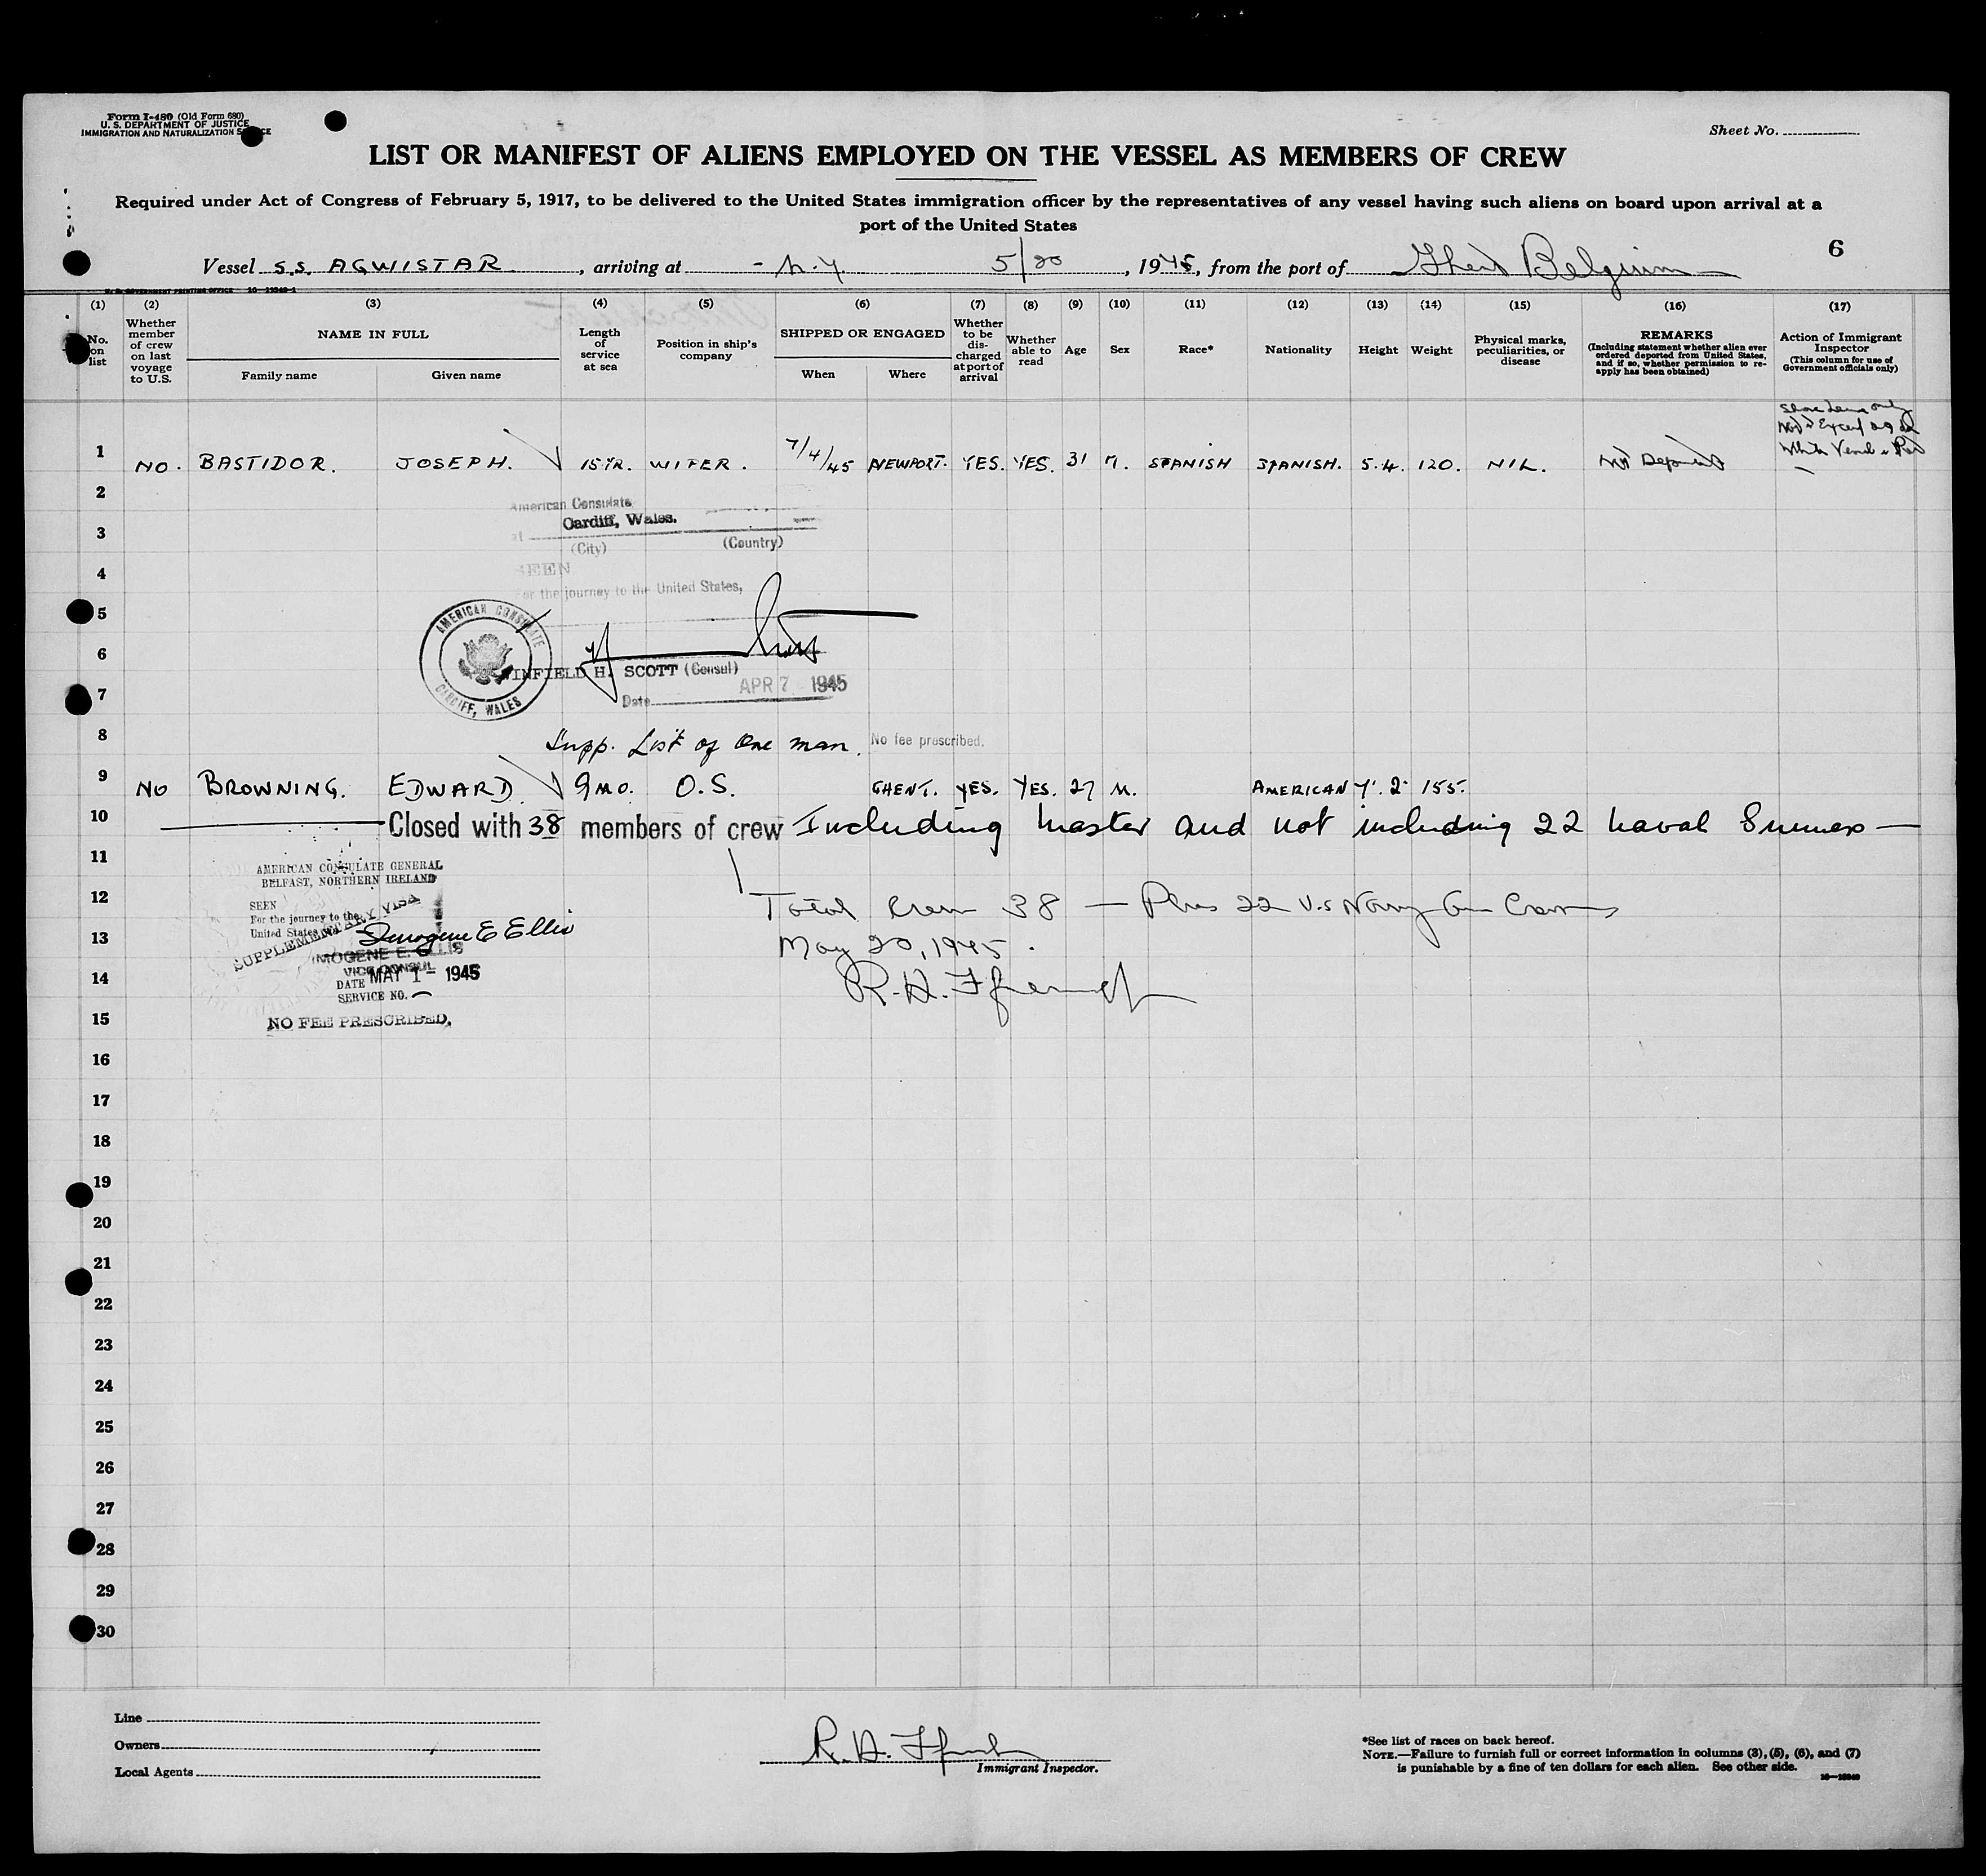 Form I-480 (Old Form 680)
U. S. DEPARTMENT OF JUSTICE
IMMIGRATION AND NATURALIZATION SERVICE
Sheet No.
LIST OR MANIFEST OF ALIENS EMPLOYED ON THE VESSEL AS MEMBERS OF CREW
Required under Act of Congress of February 5, 1917, to be delivered to the United States immigration officer by the representatives of any vessel having such aliens on board upon arrival at a
port of the United States
6
Vessel S.S. AGWISTAR, arriving at - N.Y. 5/20, 1945, from the port of Ghent Belgium
(1) (2) (3) (4) (5) (6) (7) (8) (9) (10) (11) (12) (13) (14) (15) (16) (17)
No. on list
Whether member of crew on last voyage to U.S.
NAME IN FULL
Family name Given name
Length of service at sea
Position in ship's company
SHIPPED OR ENGAGED
When Where
Whether to be discharged at port of arrival
Whether able to read
Age
Sex
Race*
Nationality
Height
Weight
Physical marks, peculiarities, or disease
REMARKS
(Including statement whether alien ever ordered deported from United States, and if so, whether permission to re-apply has been obtained)
Action of Immigrant Inspector
(This column for use of Government officials only)
1 NO. BASTIDOR. JOSEPH. 15 YR. WIPER. 7/4/45 NEWPORT. YES. YES. 31 M. SPANISH SPANISH. 5.4. 120. NIL. Not Deported
2
American Consulate
3
at Cardiff, Wales.
(City) (Country)
4
SEEN
For the journey to the United States,
5
AMERICAN CONSULATE
CARDIFF, WALES
6
WINFIELD H. SCOTT (Consul)
7
Date APR 7 1945
8
Supp. List of One man. No fee prescribed.
9 NO BROWNING. EDWARD 9 MO. O.S. GHENT. YES. YES. 27 M. AMERICAN 155.
10 Closed with 38 members of crew Including master and not including 22 naval Gunners
11
AMERICAN CONSULATE GENERAL
BELFAST, NORTHERN IRELAND
12
SEEN
For the journey to the
United States
SUPPLEMENTARY VISA
Total Crew 38 — Plus 22 U.S Navy Gun Crew
13
Imogene E Ellis
IMOGENE E. ELLIS
VICE CONSUL
May 20, 1945.
14
DATE MAY 1 - 1945
SERVICE NO.
15
NO FEE PRESCRIBED.
16
17
18
19
20
21
22
23
24
25
26
27
28
29
30
Line
Owners
Local Agents
Immigrant Inspector.
*See list of races on back hereof.
NOTE.—Failure to furnish full or correct information in columns (3), (5), (6), and (7)
is punishable by a fine of ten dollars for each alien. See other side.